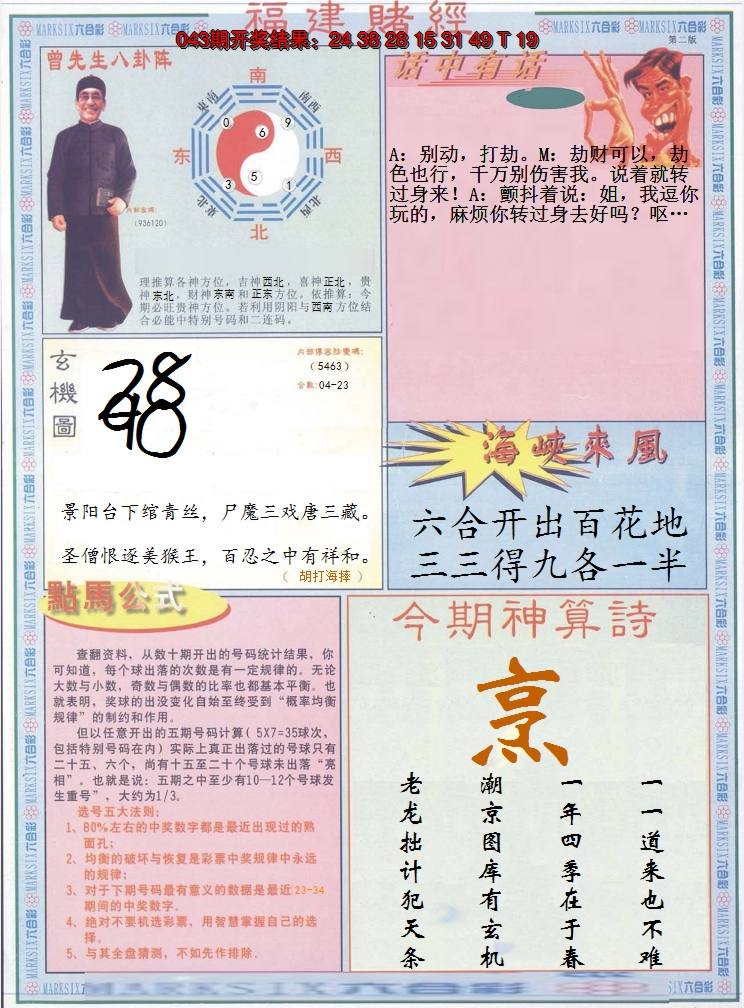 福建賭經
043期开奖结果：24 38 28 15 31 49 T 19
第二版
MARKSIX六合彩
曾先生八卦阵
南
东南
西南
0
9
6
东
西
5
3
1
东北
西北
北
内部密码：
（936120）
理推算各神方位，吉神西北，喜神正北，贵
神东北，财神东南和正东方位。依推算：今
期必旺贵神方位。若利用阴阳与西南方位结
合必能中特别号码和二连码。
话中有话
A：别动，打劫。M：劫财可以，劫
色也行，千万别伤害我。说着就转
过身来！A：颤抖着说：姐，我逗你
玩的，麻烦你转过身去好吗？呕…
玄機圖
（5463）
合数:04-23
景阳台下绾青丝，尸魔三戏唐三藏。
圣僧恨逐美猴王，百忍之中有祥和。
（ 胡打海摔 ）
海峽來風
六合开出百花地
三三得九各一半
點馬公式
查翻资料，从数十期开出的号码统计结果，你
可知道，每个球出落的次数是有一定规律的。无论
大数与小数，奇数与偶数的比率也都基本平衡。也
就表明，奖球的出没变化自始至终受到“概率均衡
规律”的制约和作用。
但以任意开出的五期号码计算（5X7=35球次，
包括特别号码在内）实际上真正出落过的号球只有
二十五、六个，尚有十五至二十个号球未出落“亮
相”。也就是说：五期之中至少有10—12个号球发
生重号”，大约为1/3。
选号五大法则：
1、80%左右的中奖数字都是最近出现过的熟
面孔；
2、均衡的破坏与恢复是彩票中奖规律中永远
的规律；
3、对于下期号码最有意义的数据是最近23-34
期间的中奖数字。
4、绝对不要机选彩票，用智慧掌握自己的选
择。
5、与其全盘猜测，不如先作排除。
今期神算詩
烹
一一道来也不难
一年四季在于春
潮京图库有玄机
老龙拙计犯天条